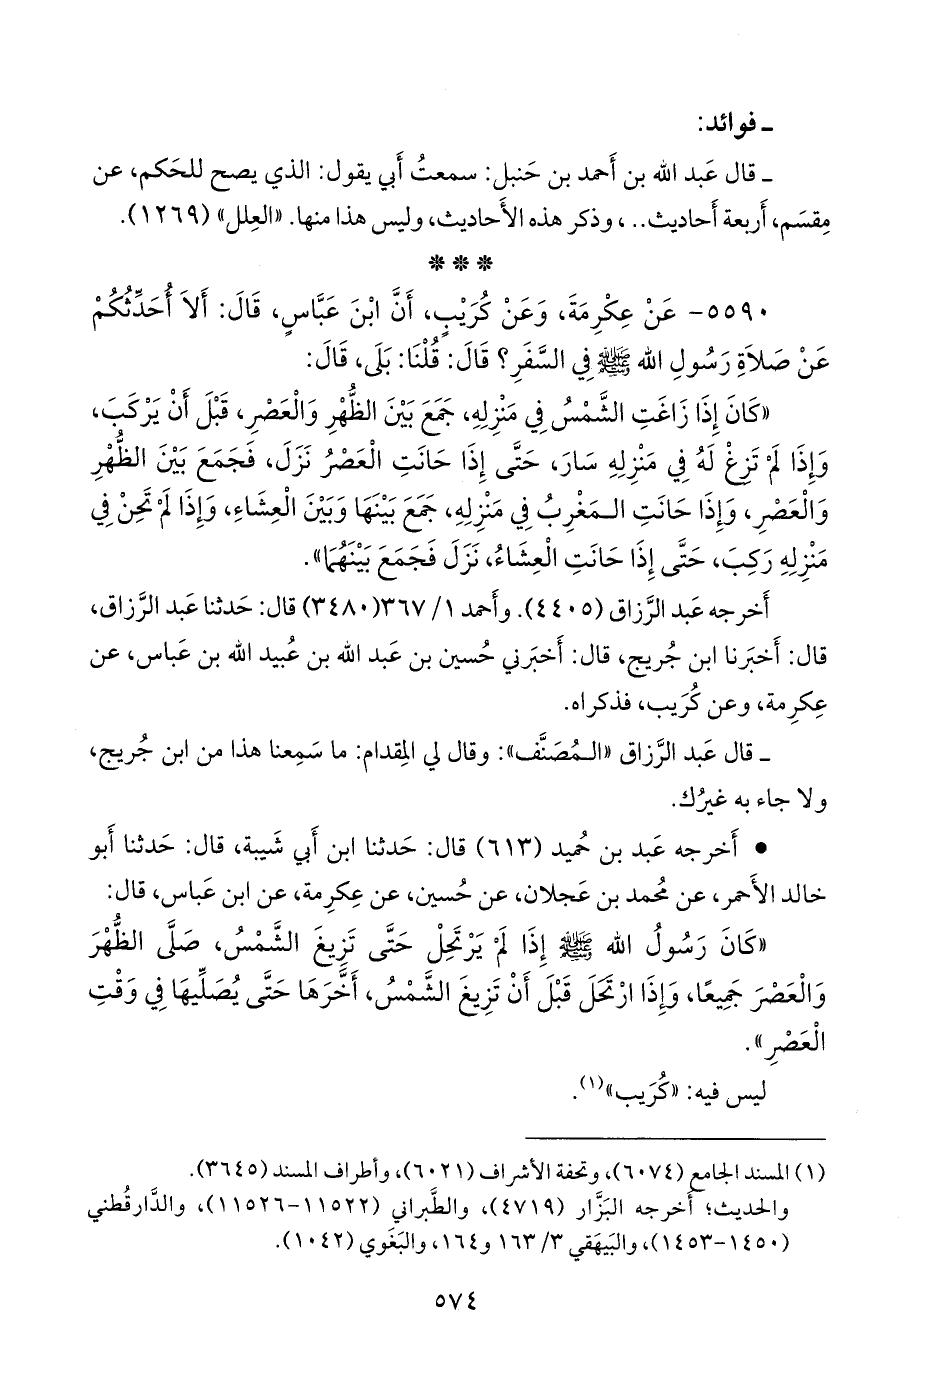 ـ فوائد:
ـ قال عَبد الله بن أَحمد بن حَنبل: سمعتُ أَبي يقول: الذي يصح للحَكم، عن
مِقسَم، أَربعة أَحاديث.. ، وذكر هذه الأَحاديث، وليس هذا منها. «العِلل» (١٢٦٩).
* * *
٥٥٩٠- عَنْ عِكْرِمَةَ، وَعَنْ كُرَيْبٍ، أَنَّ ابْنَ عَبَّاسٍ، قَالَ: أَلاَ أُحَدِّثُكُمْ
عَنْ صَلاَةِ رَسُولِ الله ﷺ فِي السَّفَرِ؟ قَالَ: قُلْنَا: بَلَى، قَالَ:
«كَانَ إِذَا زَاغَتِ الشَّمْسُ فِي مَنْزِلِهِ، جَمَعَ بَيْنَ الظُّهْرِ وَالْعَصْرِ، قَبْلَ أَنْ يَرْكَبَ،
وَإِذَا لَمْ تَزِغْ لَهُ فِي مَنْزِلِهِ سَارَ، حَتَّى إِذَا حَانَتِ الْعَصْرُ نَزَلَ، فَجَمَعَ بَيْنَ الظُّهْرِ
وَالْعَصْرِ، وَإِذَا حَانَتِ الـمَغْرِبُ فِي مَنْزِلِهِ، جَمَعَ بَيْنَهَا وَبَيْنَ الْعِشَاءِ، وَإِذَا لَمْ تَحِنْ فِي
مَنْزِلِهِ رَكِبَ، حَتَّى إِذَا حَانَتِ الْعِشَاءُ، نَزَلَ فَجَمَعَ بَيْنَهُمَا».
أَخرجه عَبد الرَّزاق (٤٤٠٥). وأَحمد ١/ ٣٦٧(٣٤٨٠) قال: حَدثنا عَبد الرَّزاق،
قال: أَخبَرنا ابن جُريج، قال: أَخبَرني حُسين بن عَبد الله بن عُبيد الله بن عَباس، عن
عِكرِمة، وعن كُرَيب، فذكراه.
ـ قال عَبد الرَّزاق «الـمُصَنَّف»: وقال لي المِقدام: ما سَمِعنا هذا من ابن جُريج،
ولا جاء به غيرُك.
• أَخرجه عَبد بن حُميد (٦١٣) قال: حَدثنا ابن أَبي شَيبة، قال: حَدثنا أَبو
خالد الأَحمر، عن مُحمد بن عَجلان، عن حُسين، عن عِكرِمة، عن ابن عَباس، قال:
«كَانَ رَسُولُ الله ﷺ إِذَا لَمْ يَرْتَحِلْ حَتَّى تَزِيغَ الشَّمْسُ، صَلَّى الظُّهْرَ
وَالْعَصْرَ جَمِيعًا، وَإِذَا ارْتَحَلَ قَبْلَ أَنْ تَزِيغَ الشَّمْسُ، أَخَّرَهَا حَتَّى يُصَلِّيَهَا فِي وَقْتِ
الْعَصْرِ».
ليس فيه: «كُرَيب»(١).
(١) المسند الجامع (٦٠٧٤)، وتحفة الأشراف (٦٠٢١)، وأطراف المسند (٣٦٤٥).
والحديث؛ أَخرجه البَزَّار (٤٧١٩)، والطَّبراني (١١٥٢٢-١١٥٢٦)، والدَّارقُطني
(١٤٥٠-١٤٥٣)، والبَيهَقي ٣/ ١٦٣ و١٦٤، والبَغَوي (١٠٤٢).
٥٧٤